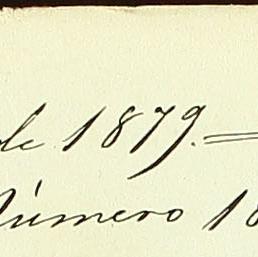 de 1879.=
Número 18